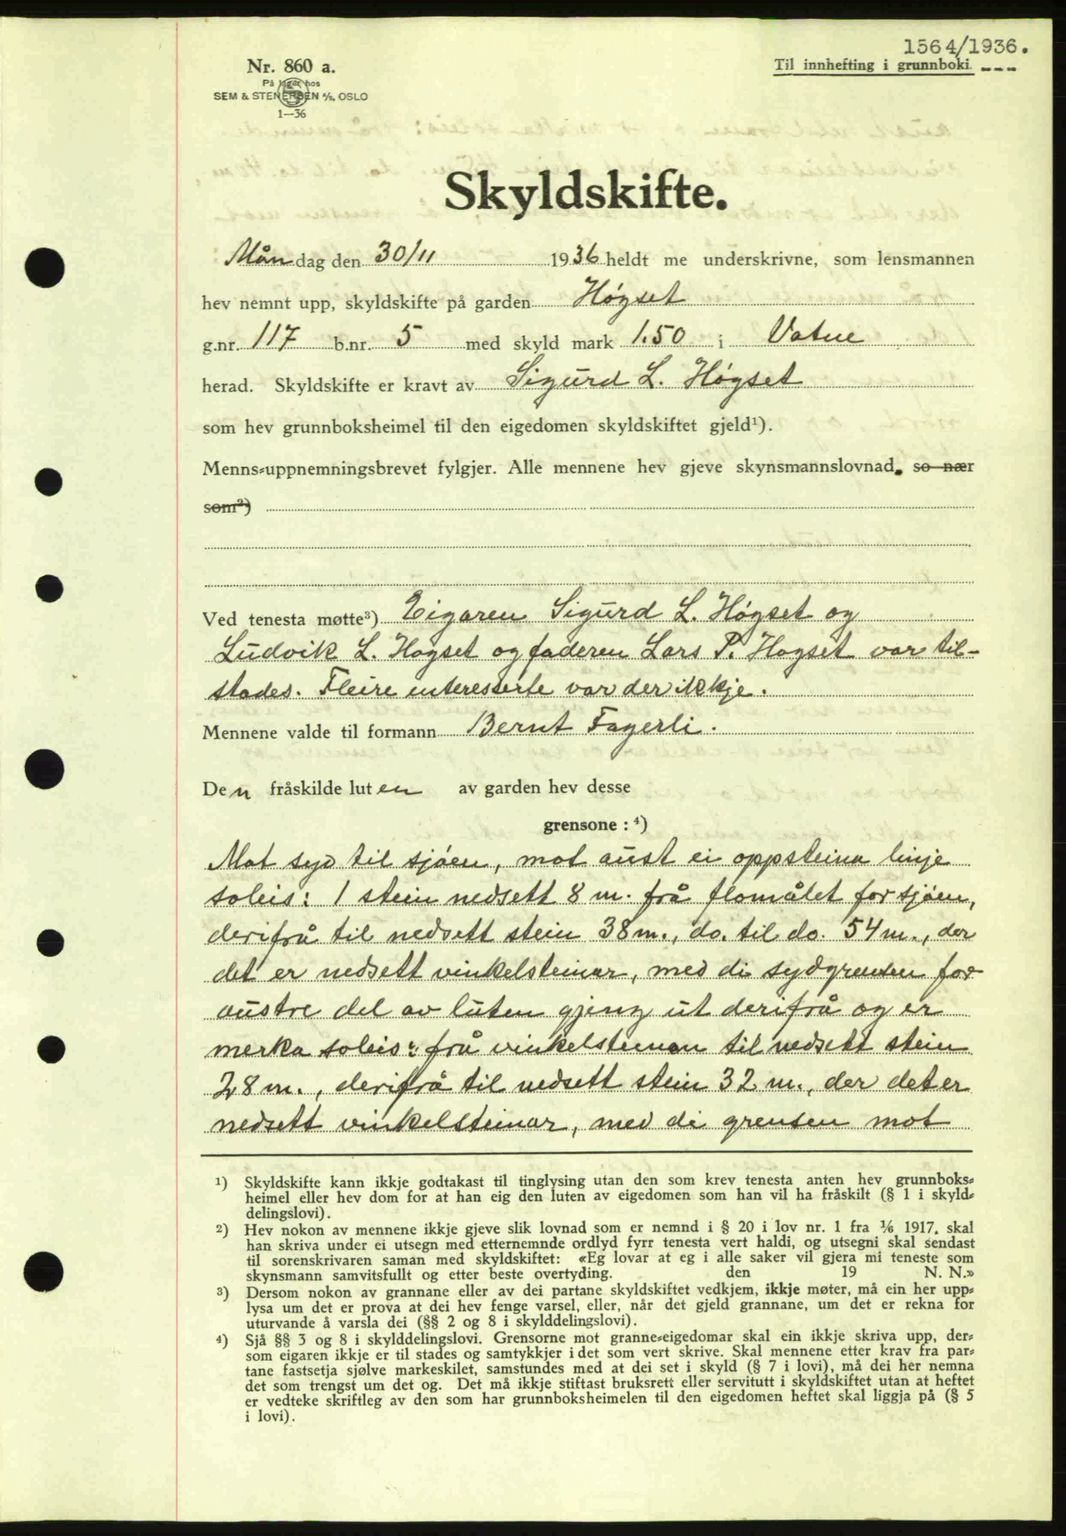 1564/1936.
Til innhefting i grunnboki
Nr. 860 a.
På lager hos
SEM & STENERSEN A/S, OSLO
1—36
Skyldskifte.
Måndag den 30/11 1936 heldt me underskrivne, som lensmannen
hev nemnt upp, skyldskifte på garden Høgset
g.nr. 117 b.nr. 5 med skyld mark 1.50 i Vatne
herad. Skyldskifte er kravt av Sigurd L. Høgset
som hev grunnboksheimel til den eigedomen skyldskiftet gjeld¹).
Menns-uppnemningsbrevet fylgjer. Alle mennene hev gjeve skynsmannslovnad. so nær
som²)
Ved tenesta møtte³) Eigaren Sigurd L. Høgset og
Ludvik L. Høgset og faderen Lars P. Høgset var til-
stades. Fleire interesserte var der ikkje.
Mennene valde til formann Bernt Fagerli.
Den fråskilde luten av garden hev desse
grensone : ⁴)
Mot syd til sjøen, mot aust ei oppsteina linje
soleis: 1 stein nedsett 8 m. frå flomålet for sjøen,
derifrå til nedsett stein 38 m., do. til do. 54 m., der
det er nedsett vinkelsteinar, med di sydgrensen for
austre del av luten gjeng ut derifrå og er
merka soleis: frå vinkelsteinen til nedsett stein
28 m., derifrå til nedsett stein 32 m., der det er
nedsett vinkelsteinar, med di grensen mot
¹) Skyldskifte kann ikkje godtakast til tinglysing utan den som krev tenesta anten hev grunnboks-
heimel eller hev dom for at han eig den luten av eigedomen som han vil ha fråskilt (§ 1 i skyld-
delingslovi).
²) Hev nokon av mennene ikkje gjeve slik lovnad som er nemnd i § 20 i lov nr. 1 fra ¹⁄₆ 1917, skal
han skriva under ei utsegn med etternemnde ordlyd fyrr tenesta vert haldi, og utsegni skal sendast
til sorenskrivaren saman med skyldskiftet: «Eg lovar at eg i alle saker vil gjera mi teneste som
skynsmann samvitsfullt og etter beste overtyding. den 19 N. N.»
³) Dersom nokon av grannane eller av dei partane skyldskiftet vedkjem, ikkje møter, må ein her upp-
lysa um det er prova at dei hev fenge varsel, eller, når det gjeld grannane, um det er rekna for
uturvande å varsla dei (§§ 2 og 8 i skylddelingslovi).
⁴) Sjå §§ 3 og 8 i skylddelingslovi. Grensorne mot granne-eigedomar skal ein ikkje skriva upp, der-
som eigaren ikkje er til stades og samtykkjer i det som vert skrive. Skal mennene etter krav fra par-
tane fastsetja sjølve markeskilet, samstundes med at dei set i skyld (§ 7 i lovi), må dei her nemna
det som trengst um det og. Det må ikkje stiftast bruksrett eller servitutt i skyldskiftet utan at heftet
er vedteke skriftleg av den som har grunnboksheimelen til den eigedomen heftet skal liggja på (§ 5
i lovi).